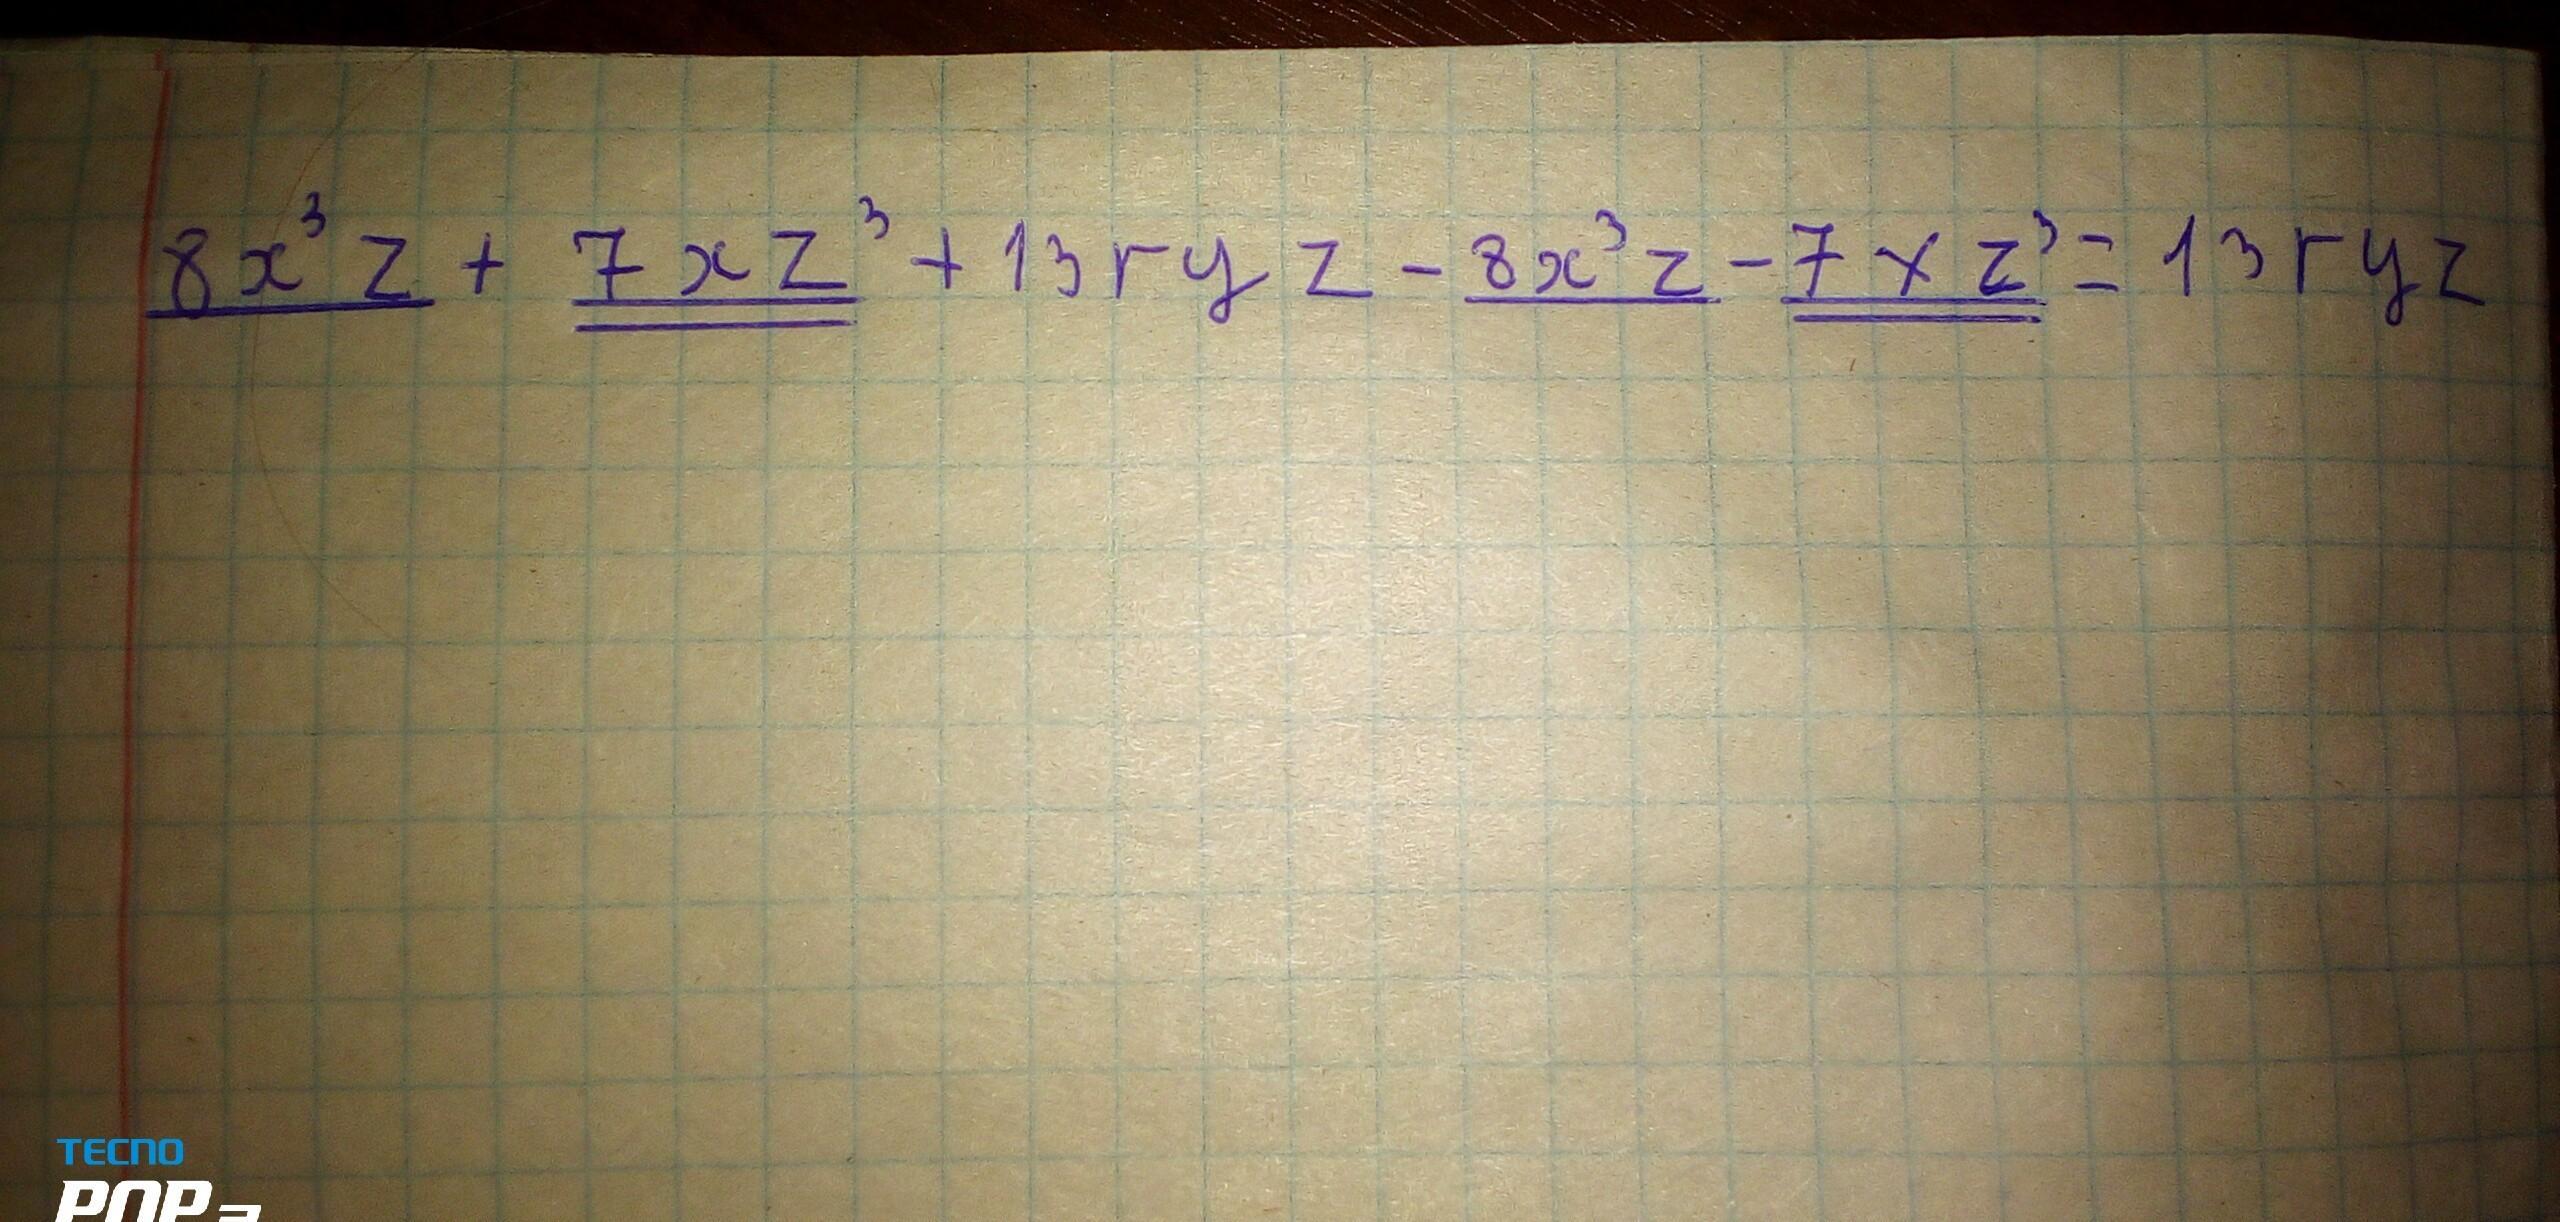 8x³z + 7xz³ + 13ryz - 8x³z - 7xz³ = 13ryz
TECNO